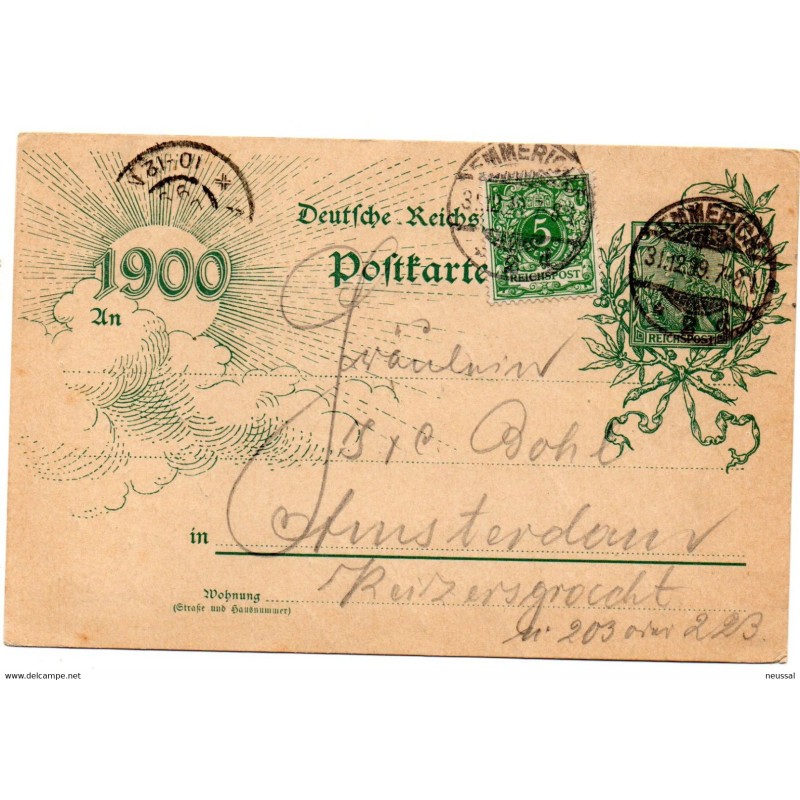 10-12 V
1900
Deutsche Reichs
Postkarte
EMMERICH
5
REICHSPOST
EMMERICH
31.12.99. 7-8 N
REICHSPOST
An
Fräulein
Bohl
in Amsterdam
Wohnung
(Straße und Hausnummer)
Keizersgracht
n: 203 oder 223.
www.delcampe.net
neussal